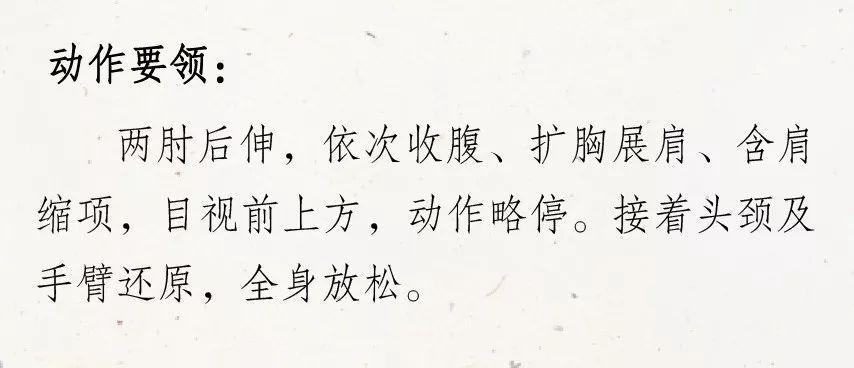 动作要领：
两肘后伸，依次收腹、扩胸展肩、含肩
缩项，目视前上方，动作略停。接着头颈及
手臂还原，全身放松。